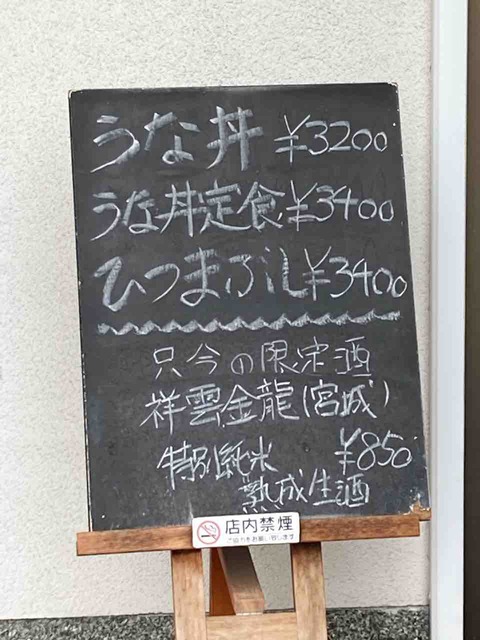 うな丼 ¥3200
うな丼定食 ¥3400
ひつまぶし ¥3400
只今の限定酒
祥雲金龍(宮城)
特別純米 ¥850
熟成生酒
店内禁煙
ご協力をお願い致します